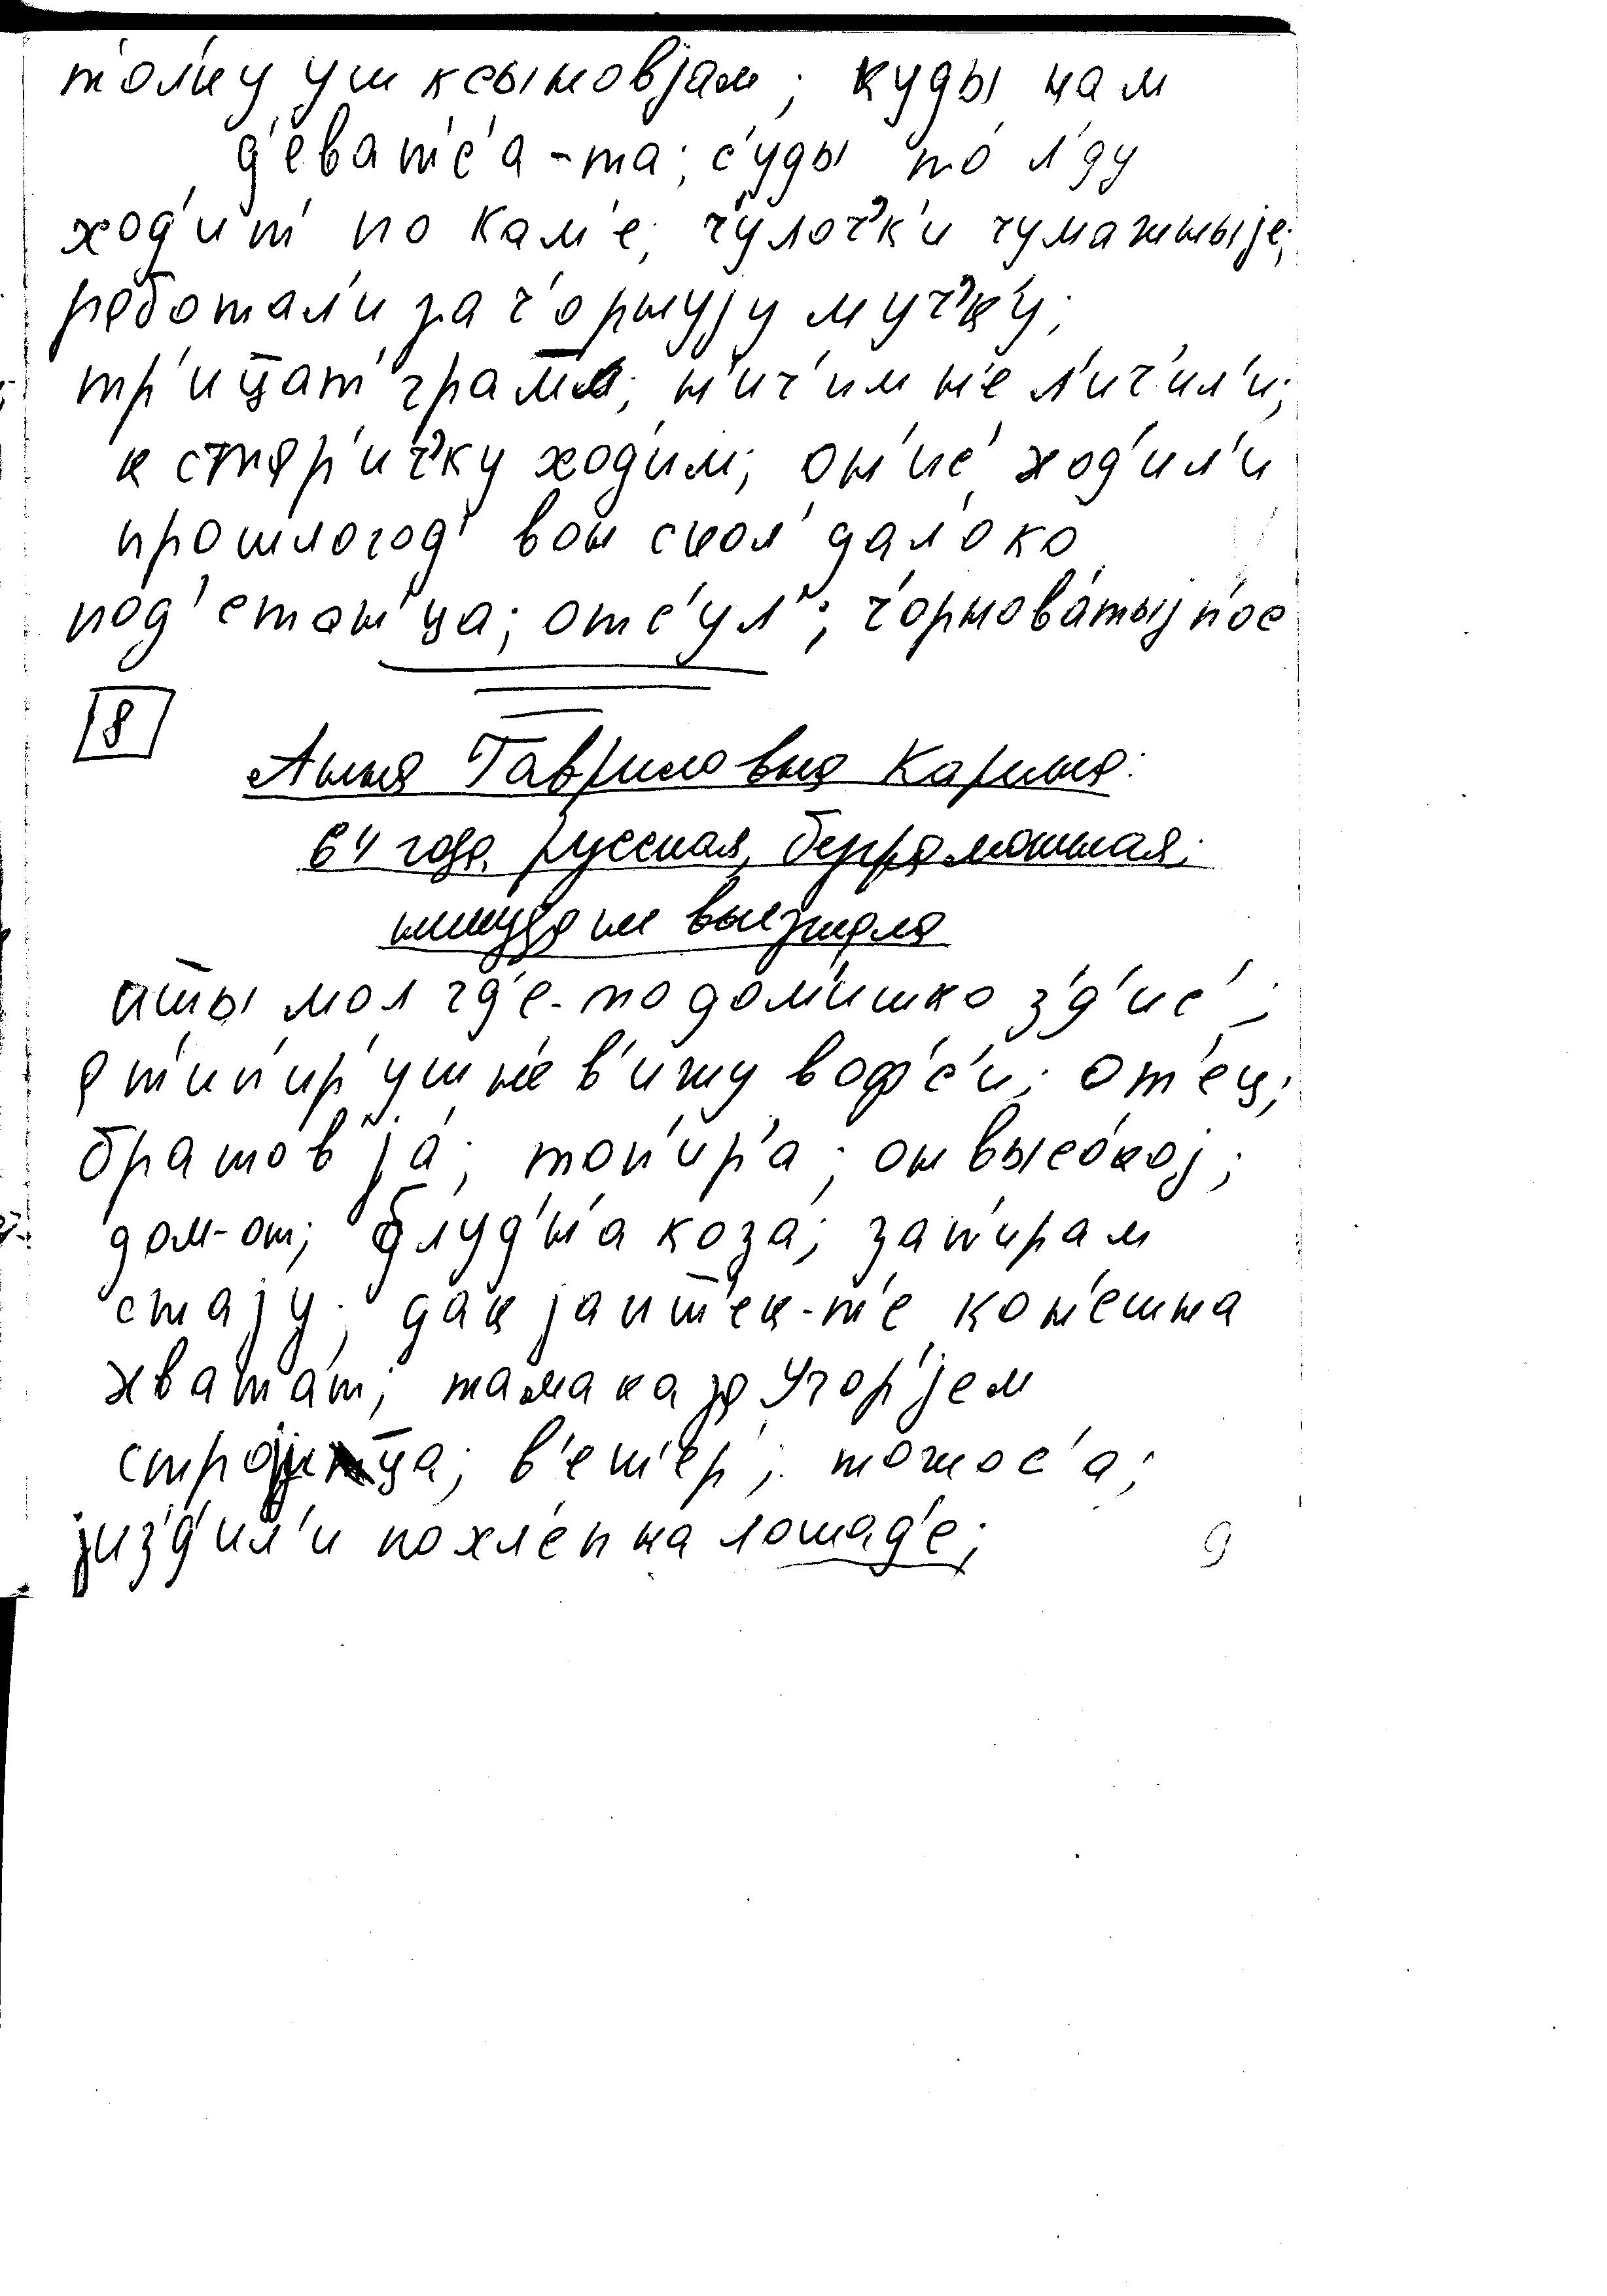 т'ол'ку уш ксыновjам; куды нам
д'еватс'а-та; с'уды по л'ду
ход'ит' по кам'е; ч'улоч'к'и чумажныjе;
работал'и за ч'орнуjу муч'ку;
тр'ицат' грамм; н'ич'им н'е л'ич'ил'и;
к стар'ич'ку ход'им; он'ис' ход'ил'и
прошлогод' вон скол' дал'око
под' стан'ца; отс'ул'; ч'орновáтыj п'ос
8
Анна Гавриловна Карина:
64 года, русская, безграмотная;
никуда не выезжала
иты мол гд'е-то дом'ишко з'д'ис';
а т'ип'ир' уш н'е в'ижу вофс'и; от'ец;
братовjá; топ'ир'а; он высóкоj;
дом-от; блуд'н'а козá; зап'ирам
стаjу; дак jаит'ек-т'е кон'ешна
хватáт; тамака за Угор'jем
строjица; в'ет'ер'; тожос'а;
jиз'д'ил'и по хл'еп на лошад'е;
9